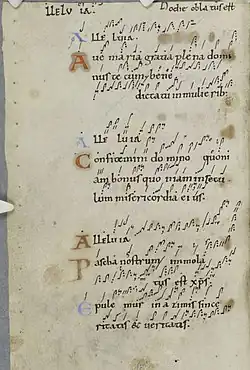 Alleluia. Hodie oblatus est
Alleluia.
Aue maria gracia plena domi
nus tecum bene
dicta tu in mulierib
Alleluia
Confitemini domino quoni
am bonus quoniam in secu
lum misericordia eius.
Alleluia
Pascha nostrum immola
tus est xps.
Epulemus in azimis since
ritatis & ueritatis.